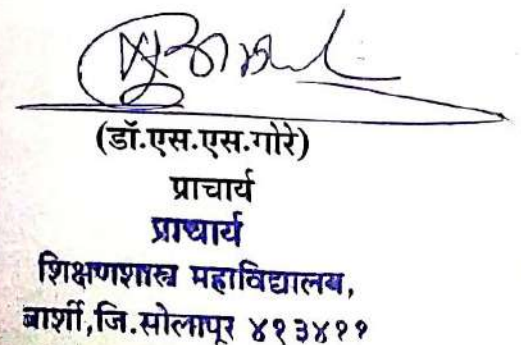 (डॉ.एस.एस.गोरे)
प्राचार्य
प्राचार्य
शिक्षणशास्त्र महाविद्यालय,
बार्शी,जि.सोलापूर ४१३४११